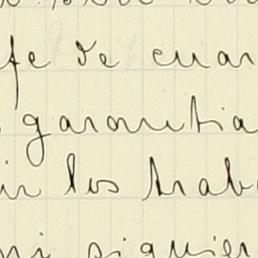 fe de cuan
garantia
ir los trab
ni siquier